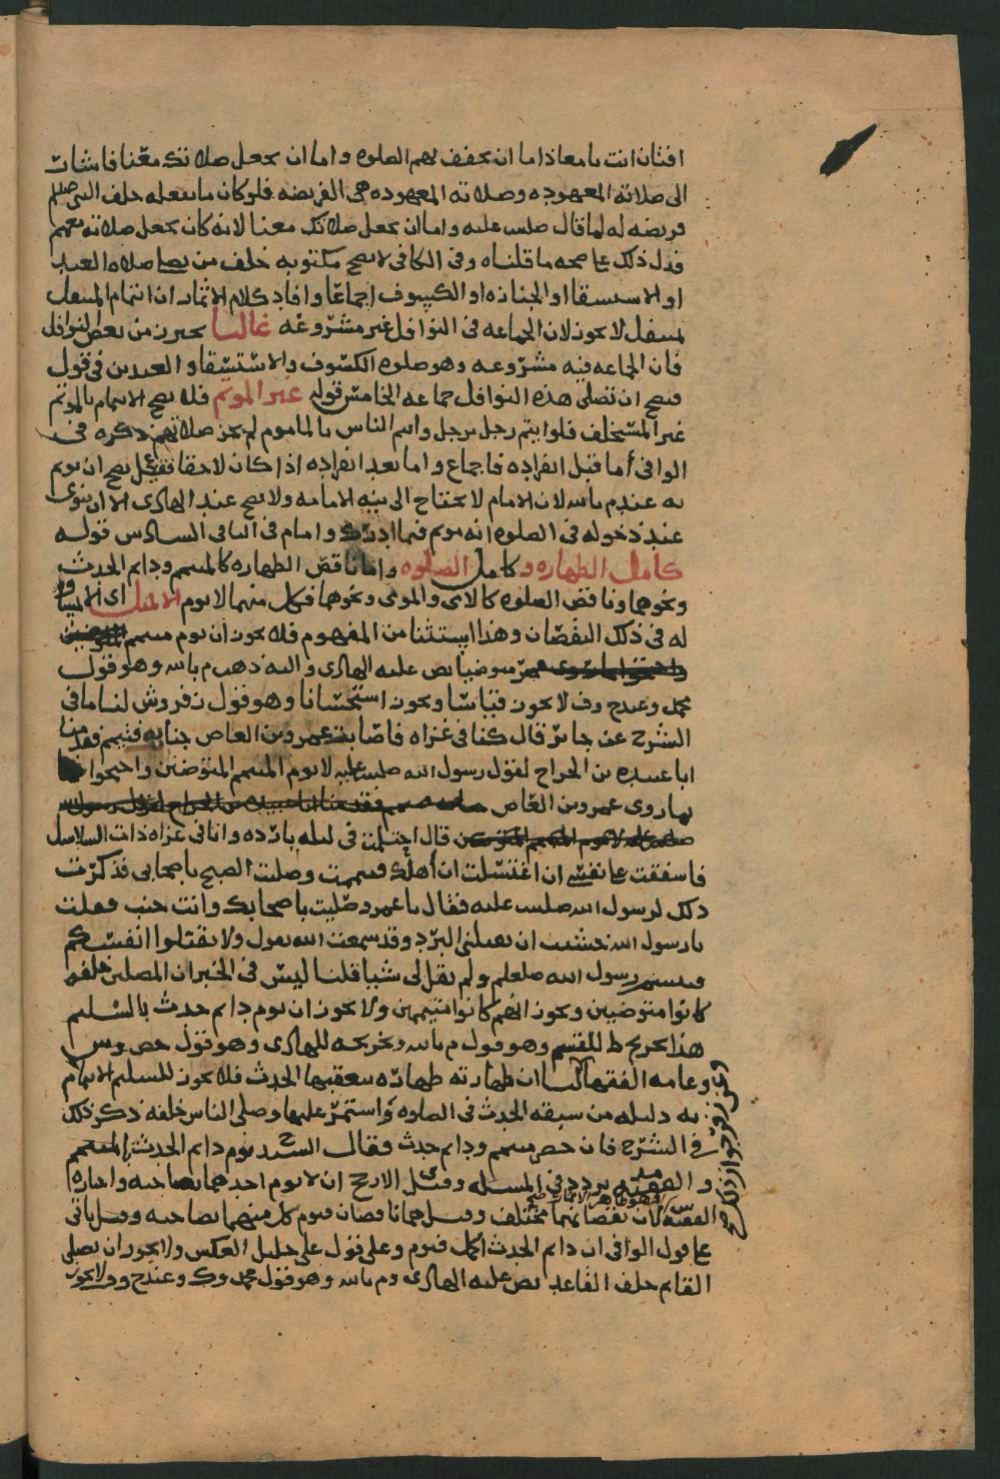 افتان انت يا معاذ اما ان تخفف بهم الصلوه واما ان تجعل صلاتك معنا فاشات
الى صلاته المعهوده وصلاته المعهوده هى الفريضه فلو كان ما يفعله خلف النبى صللم
فريضه له لما قال صلى عليه واما ان تجعل صلاتك معنا لانه كان يجعل صلاته معهم
فدل ذلك على صحه ما قلناه وفى الكافى لا يصح مكتوبه خلف من يصلى صلاه العيد
او الاستسقا او الجنازه او الكسوف اجماعا وافاد كلام الاثمار ان ائتمام المتنفل
بمتنفل لا يجوز لان الجماعه فى النوافل غير مشروعه غالبا يحترز من بعض النوافل
فان الجماعه فيه مشروعه وهو صلوه الكسوف والاستسقا والعيدين فى قول
فيصح ان تصلى هذه النوافل جماعه الخامس قوله غير الموتم فلا يصح الائتمام بالموتم
غير المستخلف فلو ايتم رجل برجل وايتم الناس بالماموم لم تجز صلاتهم ذكره فى
الوافى أما قبل انفراده فاجماع واما بعد انفراده اذا كان لاحقا فقيل يصح ان يوم
به عند م بالله لان الامام لا يحتاج الى نيه الامامه ولا يصح عند الهادى الا ان ينوى
عند دخوله فى الصلوه انه موتم فيما ادرك وامام فى الباقى السادس قوله
كامل الطهاره وكامل الصلوه واما ناقص الطهاره كالمتيمم ودايم الحدث
ونحوهما وناقص الصلوه كالامى والمومى ونحوهما فكل منهما لا يوم الاكمل اى الا المساوى
له فى ذلك النقصان وهذا استثنا من المفهوم فلا يجوز ان يوم متيمم
متوضيا نص عليه الهادى واليه ذهب م بالله وهو قول
محمد وعند ح وف لا يجوز قياسا ويجوز استحسانا وهو قول زفر وش لنا ما فى
الشرح عن جابر قال كنا فى غزاه فاصابت عمرو بن العاص جنابه فتيمم فقدمنا
ابا عبيده بن الجراح لقول رسول الله صلى عليه لا يوم المتيمم المتوضين واحتجوا
بما روى عمرو بن العاص
قال احتلمت فى ليله بارده وانا فى غزاه ذات السلاسل
فاشفقت على نفسى ان اغتسلت ان أهلك فتيممت وصليت الصبح باصحابى فذكرت
ذلك لرسول الله صلى عليه فقال يا عمرو صليت باصحابك وانت جنب فقلت
يا رسول الله خشيت ان يقتلنى البرد وقد سمعت الله يقول ولا تقتلوا انفسكم
فتبسم رسول الله صلعلم ولم يقل لى شيا قلنا ليس فى الخبر ان المصلين خلفه
كانوا متوضيين ويجوز انهم كانوا متيممين ولا يجوز ان يوم دايم حدث بالسليم
هذا تخريج ط للقسم وهو قول م بالله وتخريجه للهادى وهو قول حص وس
وعامه الفقها لنا ان طهارته طهاره يتعقبها الحدث فلا يجوز للسليم الائتمام
به دليله من سبقه الحدث فى الصلوه واستمر عليها وصلى الناس خلفه ذكر ذلك
فى الشرح فان حضر متيمم ودايم حدث فقال السيد ح يوم دايم الحدث بالمتيمم
والفقيه يتردد فى المسله وقيل الارجح ان لا يوم احدهما بصاحبه واختاره
الفقيه س لان نقصانهما مختلف وقيل هما ناقصان فيوم كل منهما بصاحبه وقيل ياتى
على قول الوافى ان دايم الحدث اكمل فيوم وعلى قول على خليل العكس ولا يجوز ان يصلى
القايم خلف القاعد نص عليه الهادى وم بالله وهو قول محمد وك وعند ح وف يجوز